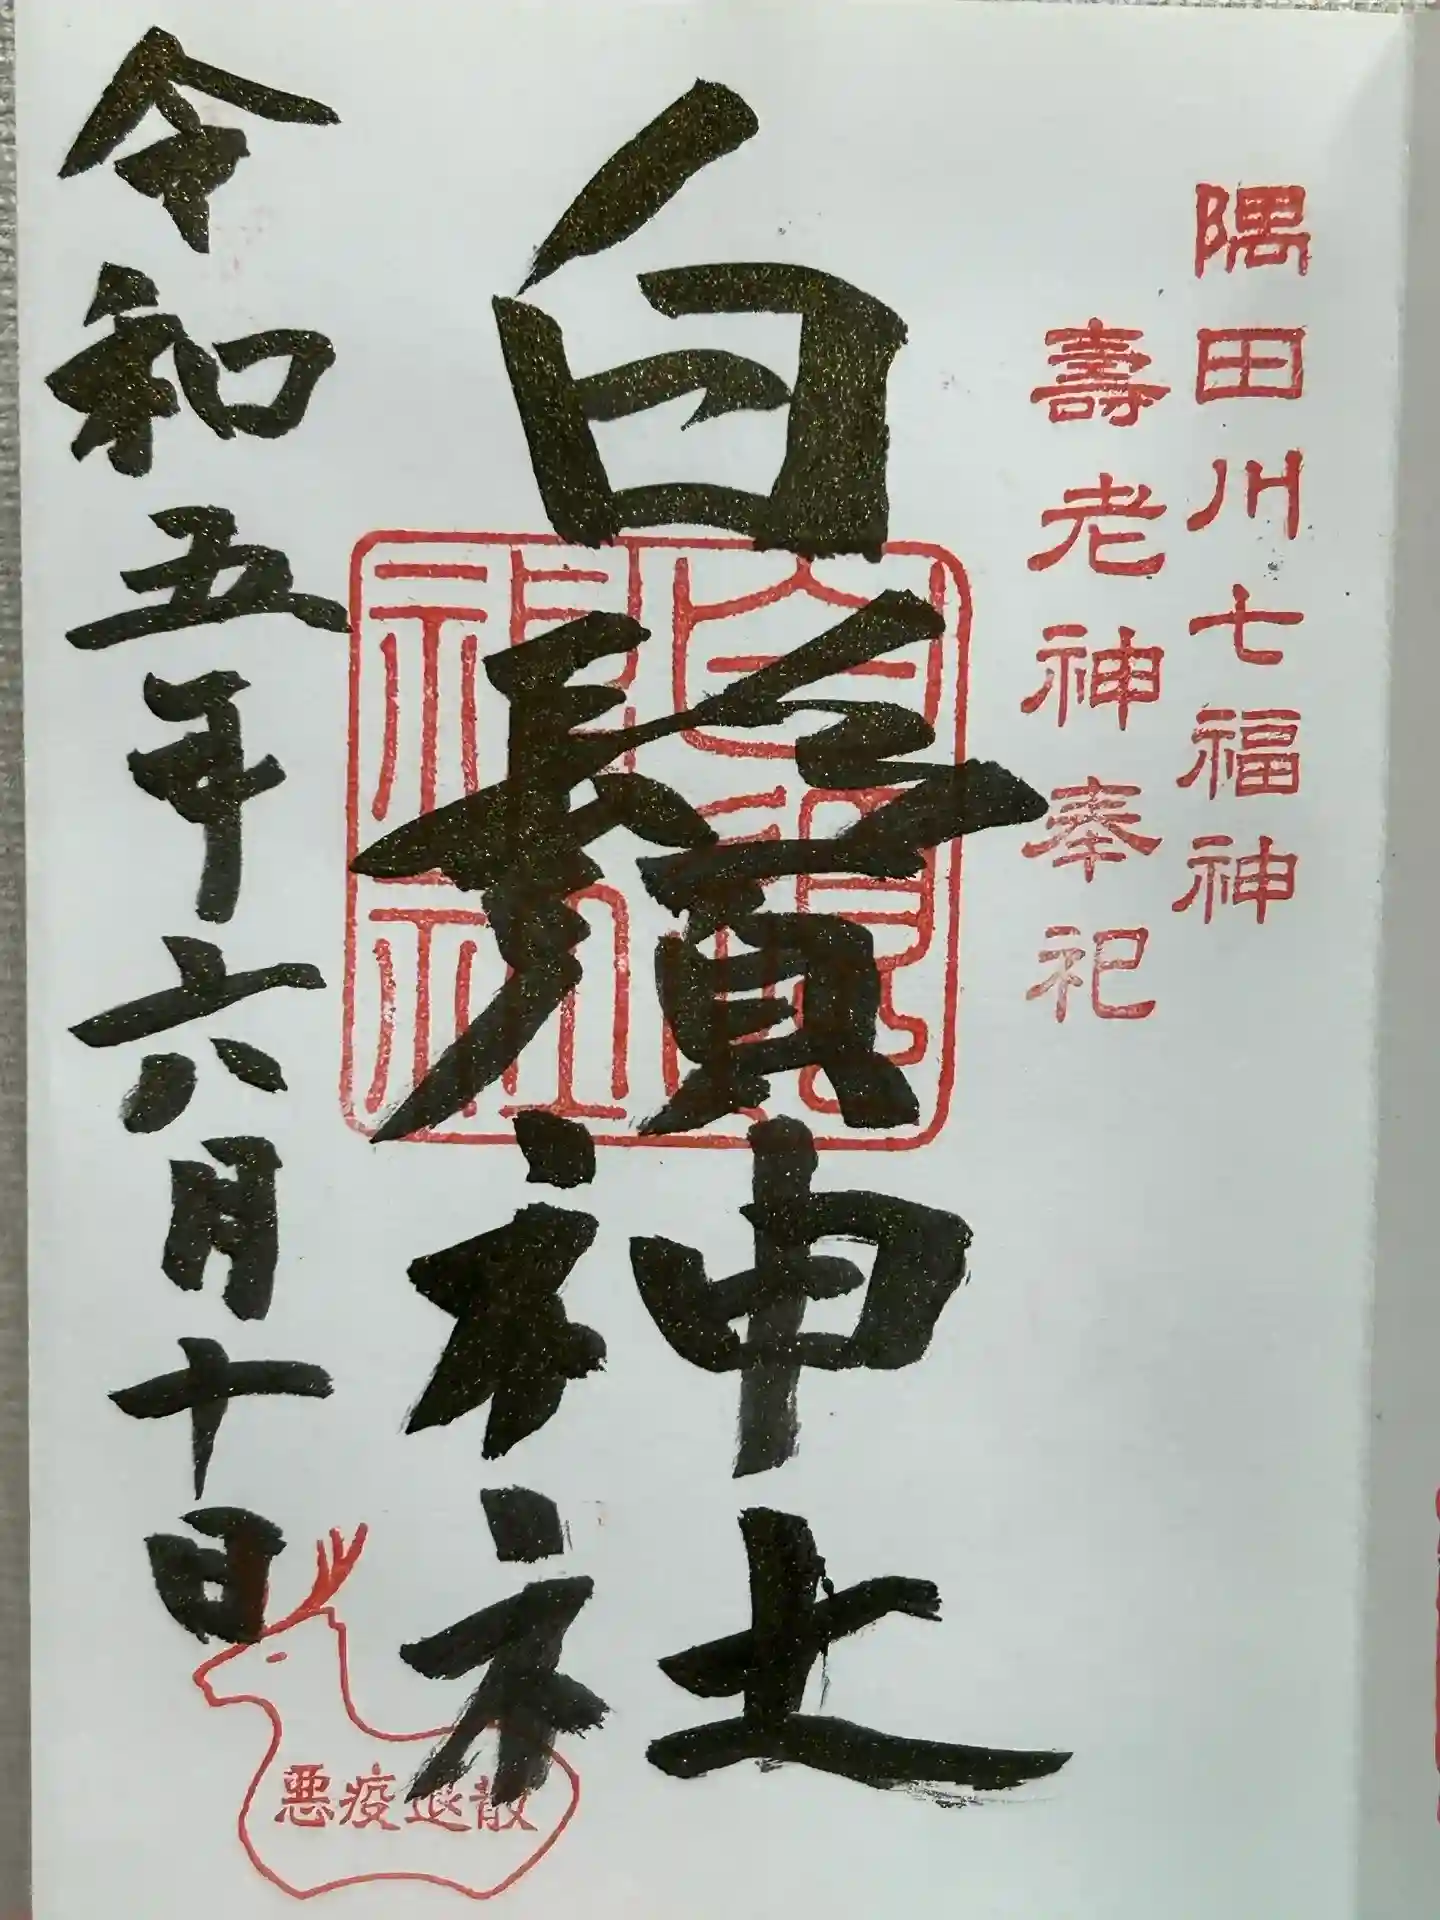 隅田川七福神
壽老神奉祀
白鬚神社
白鬚神社
令和五年六月十日
悪疫退散